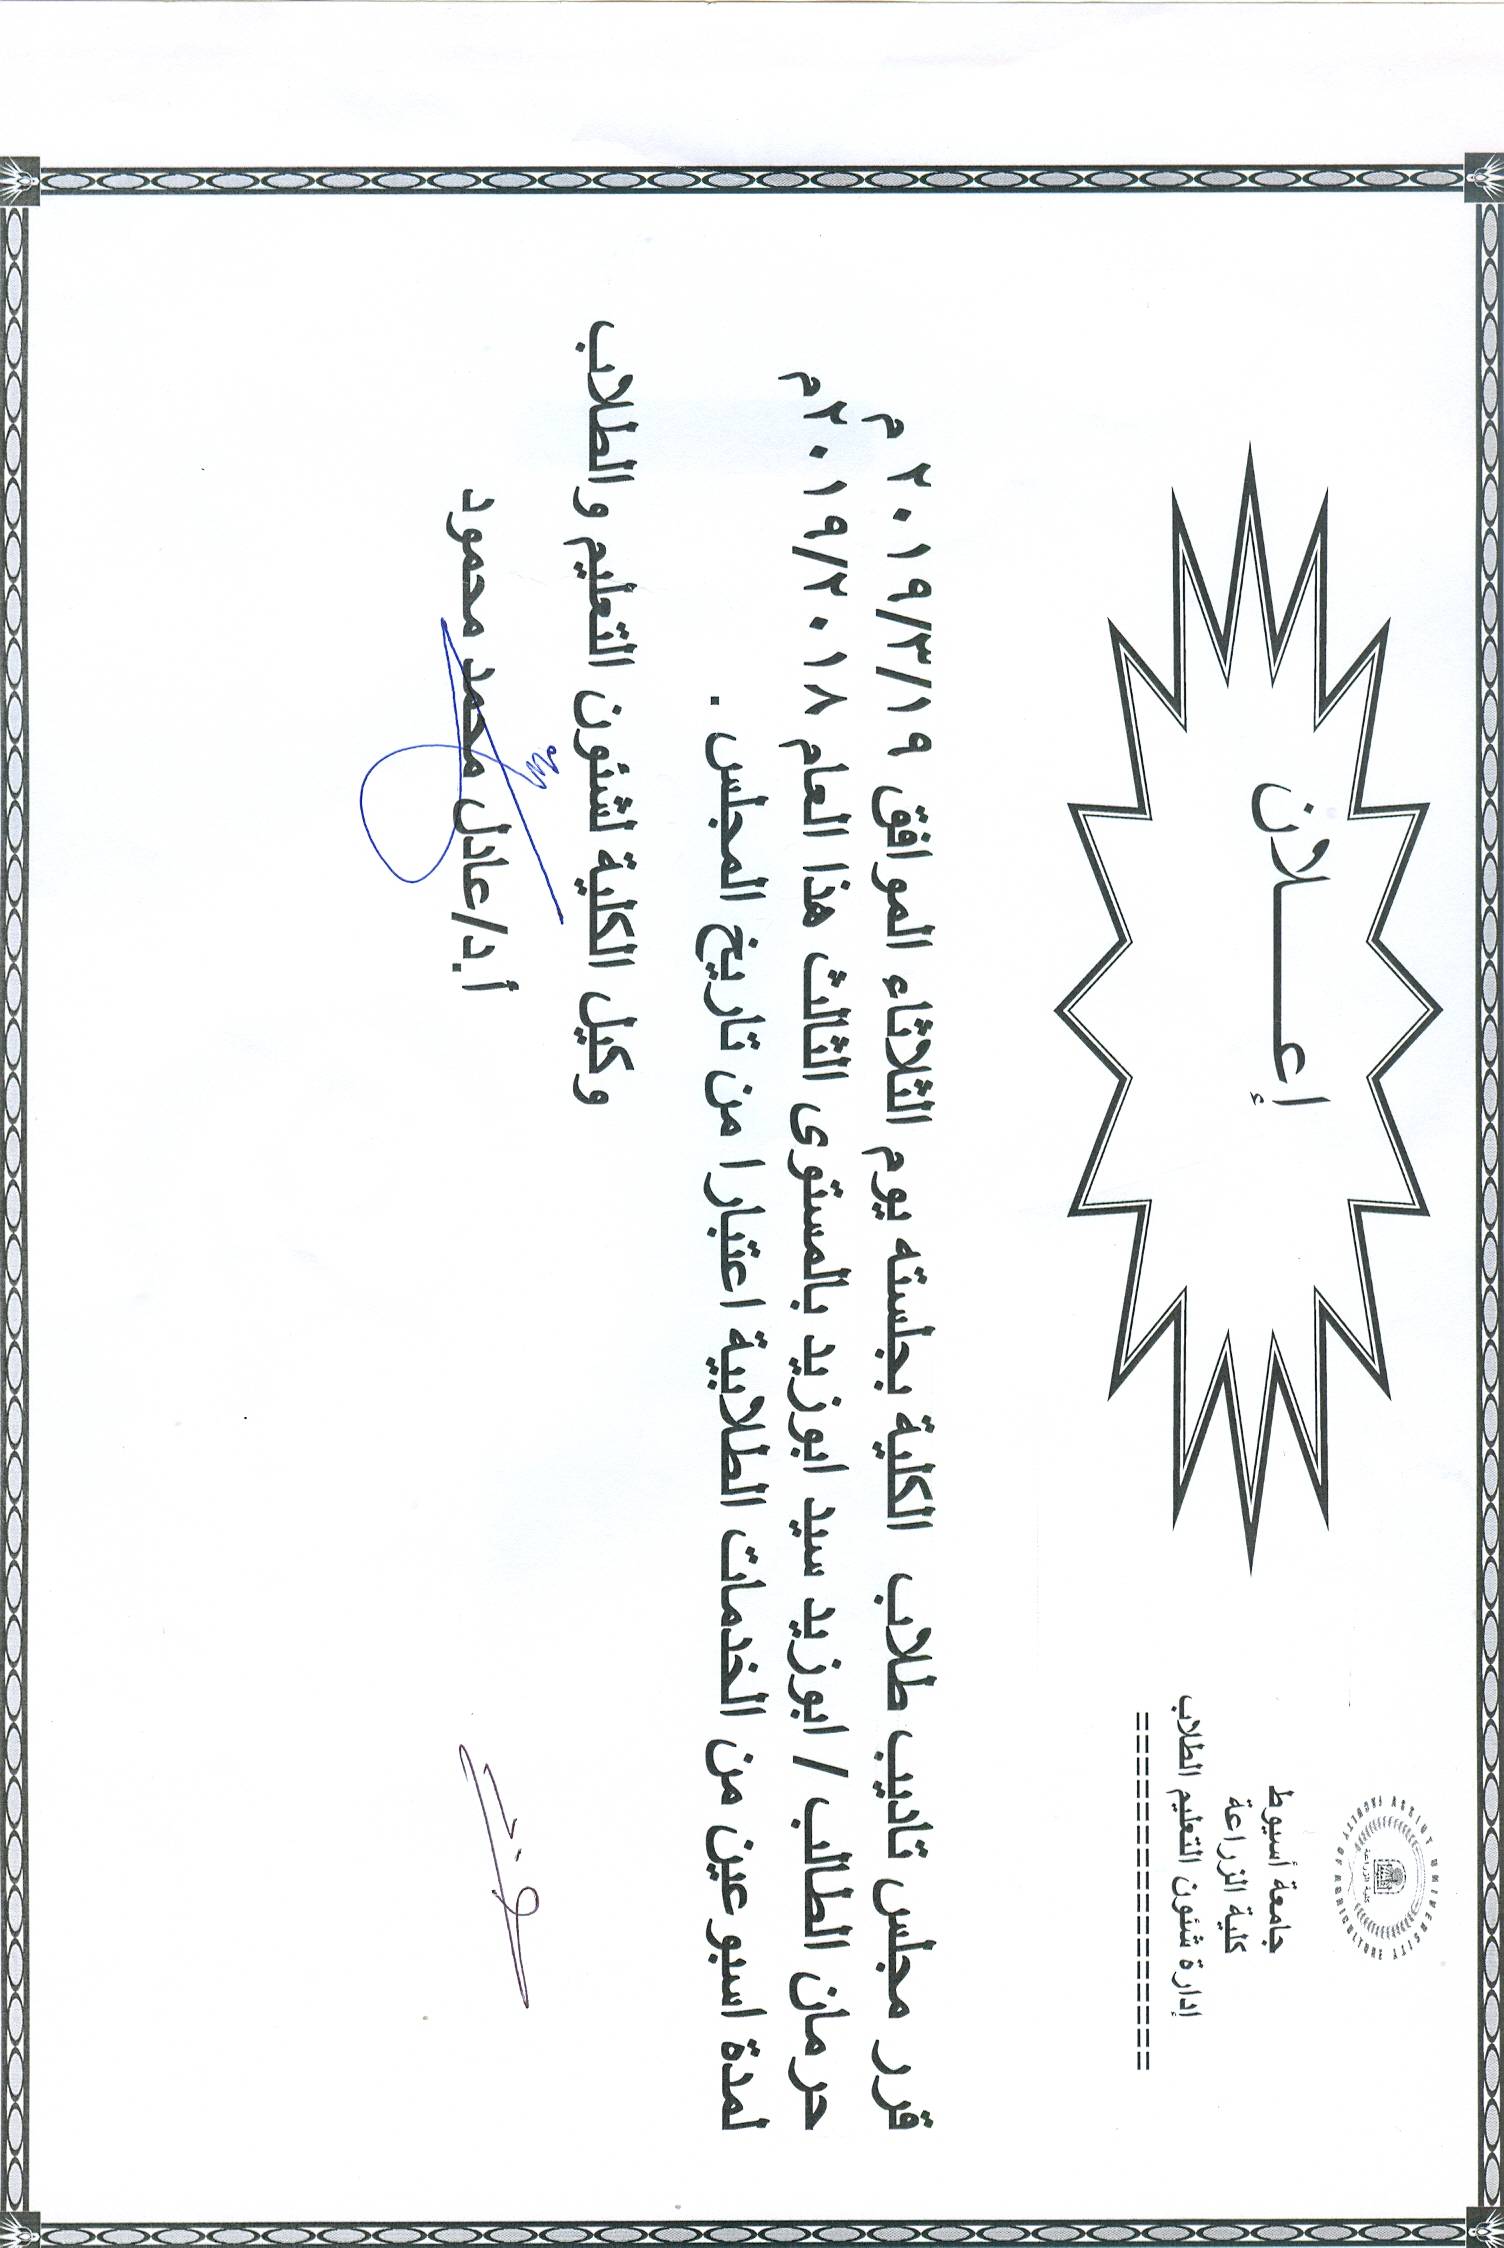 ASSIUT UNIVERSITY FACULTY OF AGRICULTURE
كلية الزراعة
جامعة أسيوط
كلية الزراعة
إدارة شئون التعليم الطلاب
==================
إعـــلان
قرر مجلس تاديب طلاب الكلية بجلسته يوم الثلاثاء الموافق ٢٠١٩/٣/١٩ م
حرمان الطالب / ابوزيد سيد ابوزيد بالمستوى الثالث هذا العام ٢٠١٩/٢٠١٨م
لمدة اسبوعين من الخدمات الطلابية اعتبارا من تاريخ المجلس .
وكيل الكلية لشئون التعليم والطلاب
أ.د/عادل محمد محمود